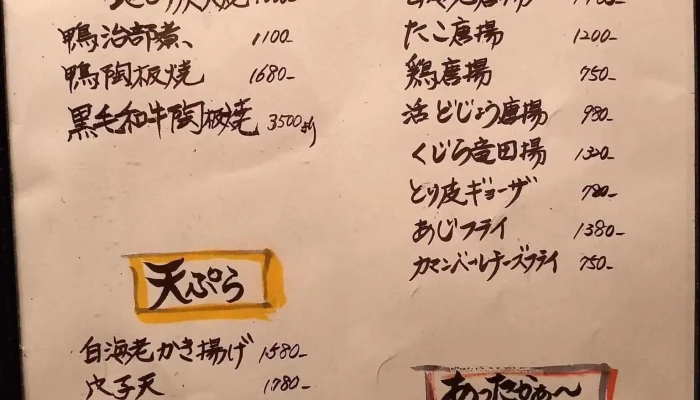 鴨治部煮、 1100-
鴨陶板焼 1680-
黒毛和牛陶板焼 3500より
天ぷら
白海老かき揚げ 1580-
穴子天 1780-
たこ唐揚 1200-
鶏唐揚 750-
活どじょう唐揚 980-
くじら竜田揚 1320-
とり皮ギョーザ 780-
あじフライ 1380-
カマンベールチーズフライ 750-
あったかぁ〜